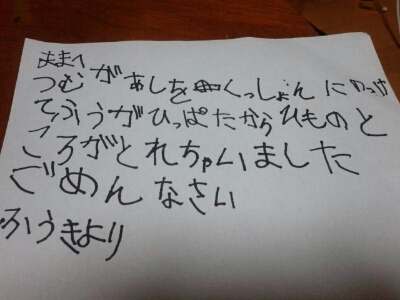 ままへ
つむがあしをくっしょんにのっけ
てふうがひっぱたからひものと
ころがとれちゃいました
ごめんなさい
ふうきより